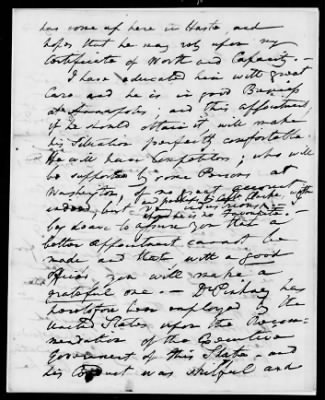 has come up here in Haste, and
hopes that he may rely upon my
Certificate of Worth and Capacity. —
I have educated him with great
Care and he is in good Business
at Annapolis; and this appointment,
if he should obtain it, will make
his Situation perfectly comfortable.
He will have Competitors; who will
be supported by some Persons at
Washington, of no great account
indeed, but
he is no favourite. —
leave to assure you that a
better appointment cannot be
made and that with a good
Officer you will make a
grateful one. — Dr Pinkney has
heretofore been employed by the
United States upon the Recom-
mendation of the Executive
Government of this State — and
his Conduct was skilful and